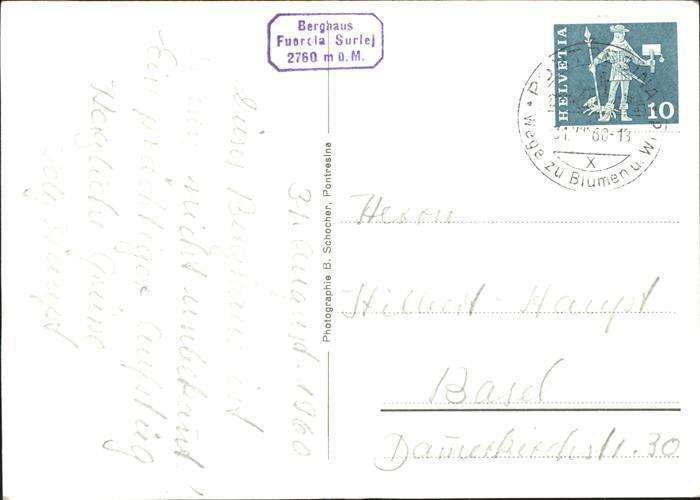 Berghaus
Fuorcla Surlej
2760 m ü. M.
HELVETIA
10
31.
60-18
X
Wege zu Blumen u.
31. August. 1960
Dieses Berghaus ist
nicht unbekannt!
Ein prächtiger Ausflug
Herzliche Grüsse
Photographie B. Schocher, Pontresina
Herrn
Hilbert-Haupt
Basel
Dammerkirchstr. 30